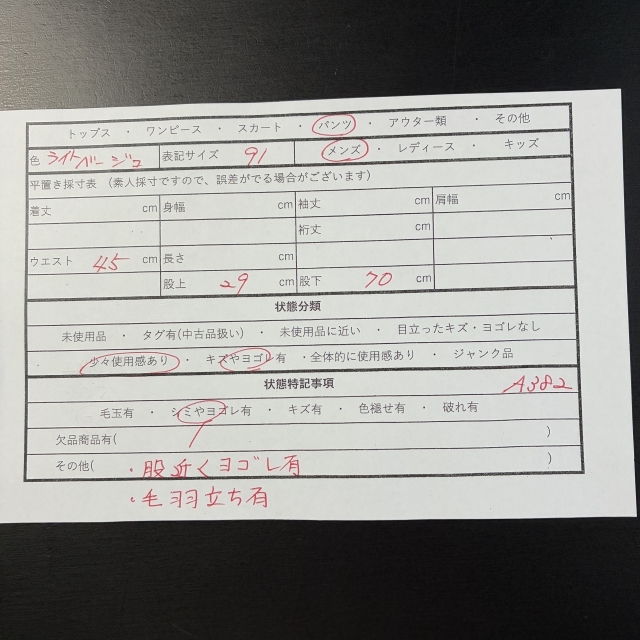 トップス ・ ワンピース ・ スカート ・ パンツ ・ アウター類 ・ その他
色 ライトベージュ 表記サイズ 91 メンズ ・ レディース ・ キッズ
平置き採寸表 (素人採寸ですので、誤差がでる場合がございます)
着丈 cm 身幅 cm 袖丈 cm 肩幅 cm
裄丈 cm
ウエスト 45 cm 長さ cm
股上 29 cm 股下 70 cm
状態分類
未使用品 ・ タグ有(中古品扱い) ・ 未使用品に近い ・ 目立ったキズ・ヨゴレなし
少々使用感あり ・ キズやヨゴレ有 ・全体的に使用感あり ・ ジャンク品
状態特記事項 A382
毛玉有 ・ シミやヨゴレ有 ・ キズ有 ・ 色褪せ有 ・ 破れ有
欠品商品有( )
その他( ・股近くヨゴレ有 )
・毛羽立ち有